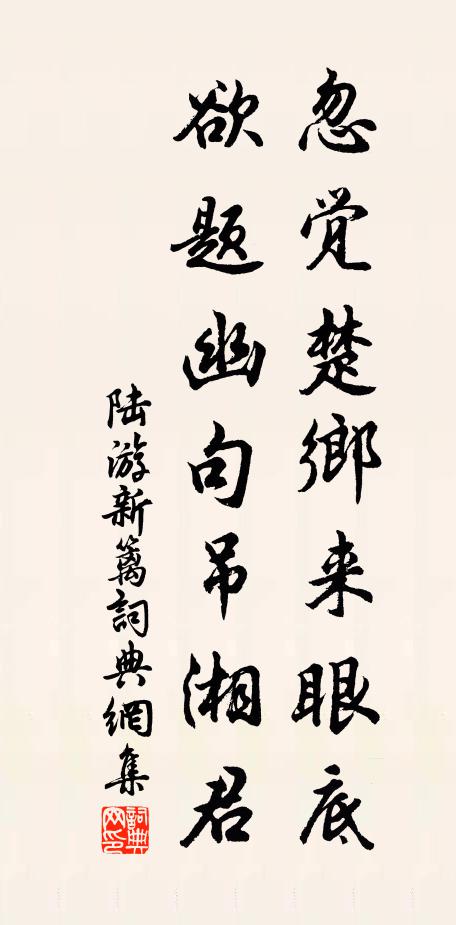 忽觉楚鄉来眼底
欲题幽句吊湘君
陆游新篱詞典網集
詞典網印